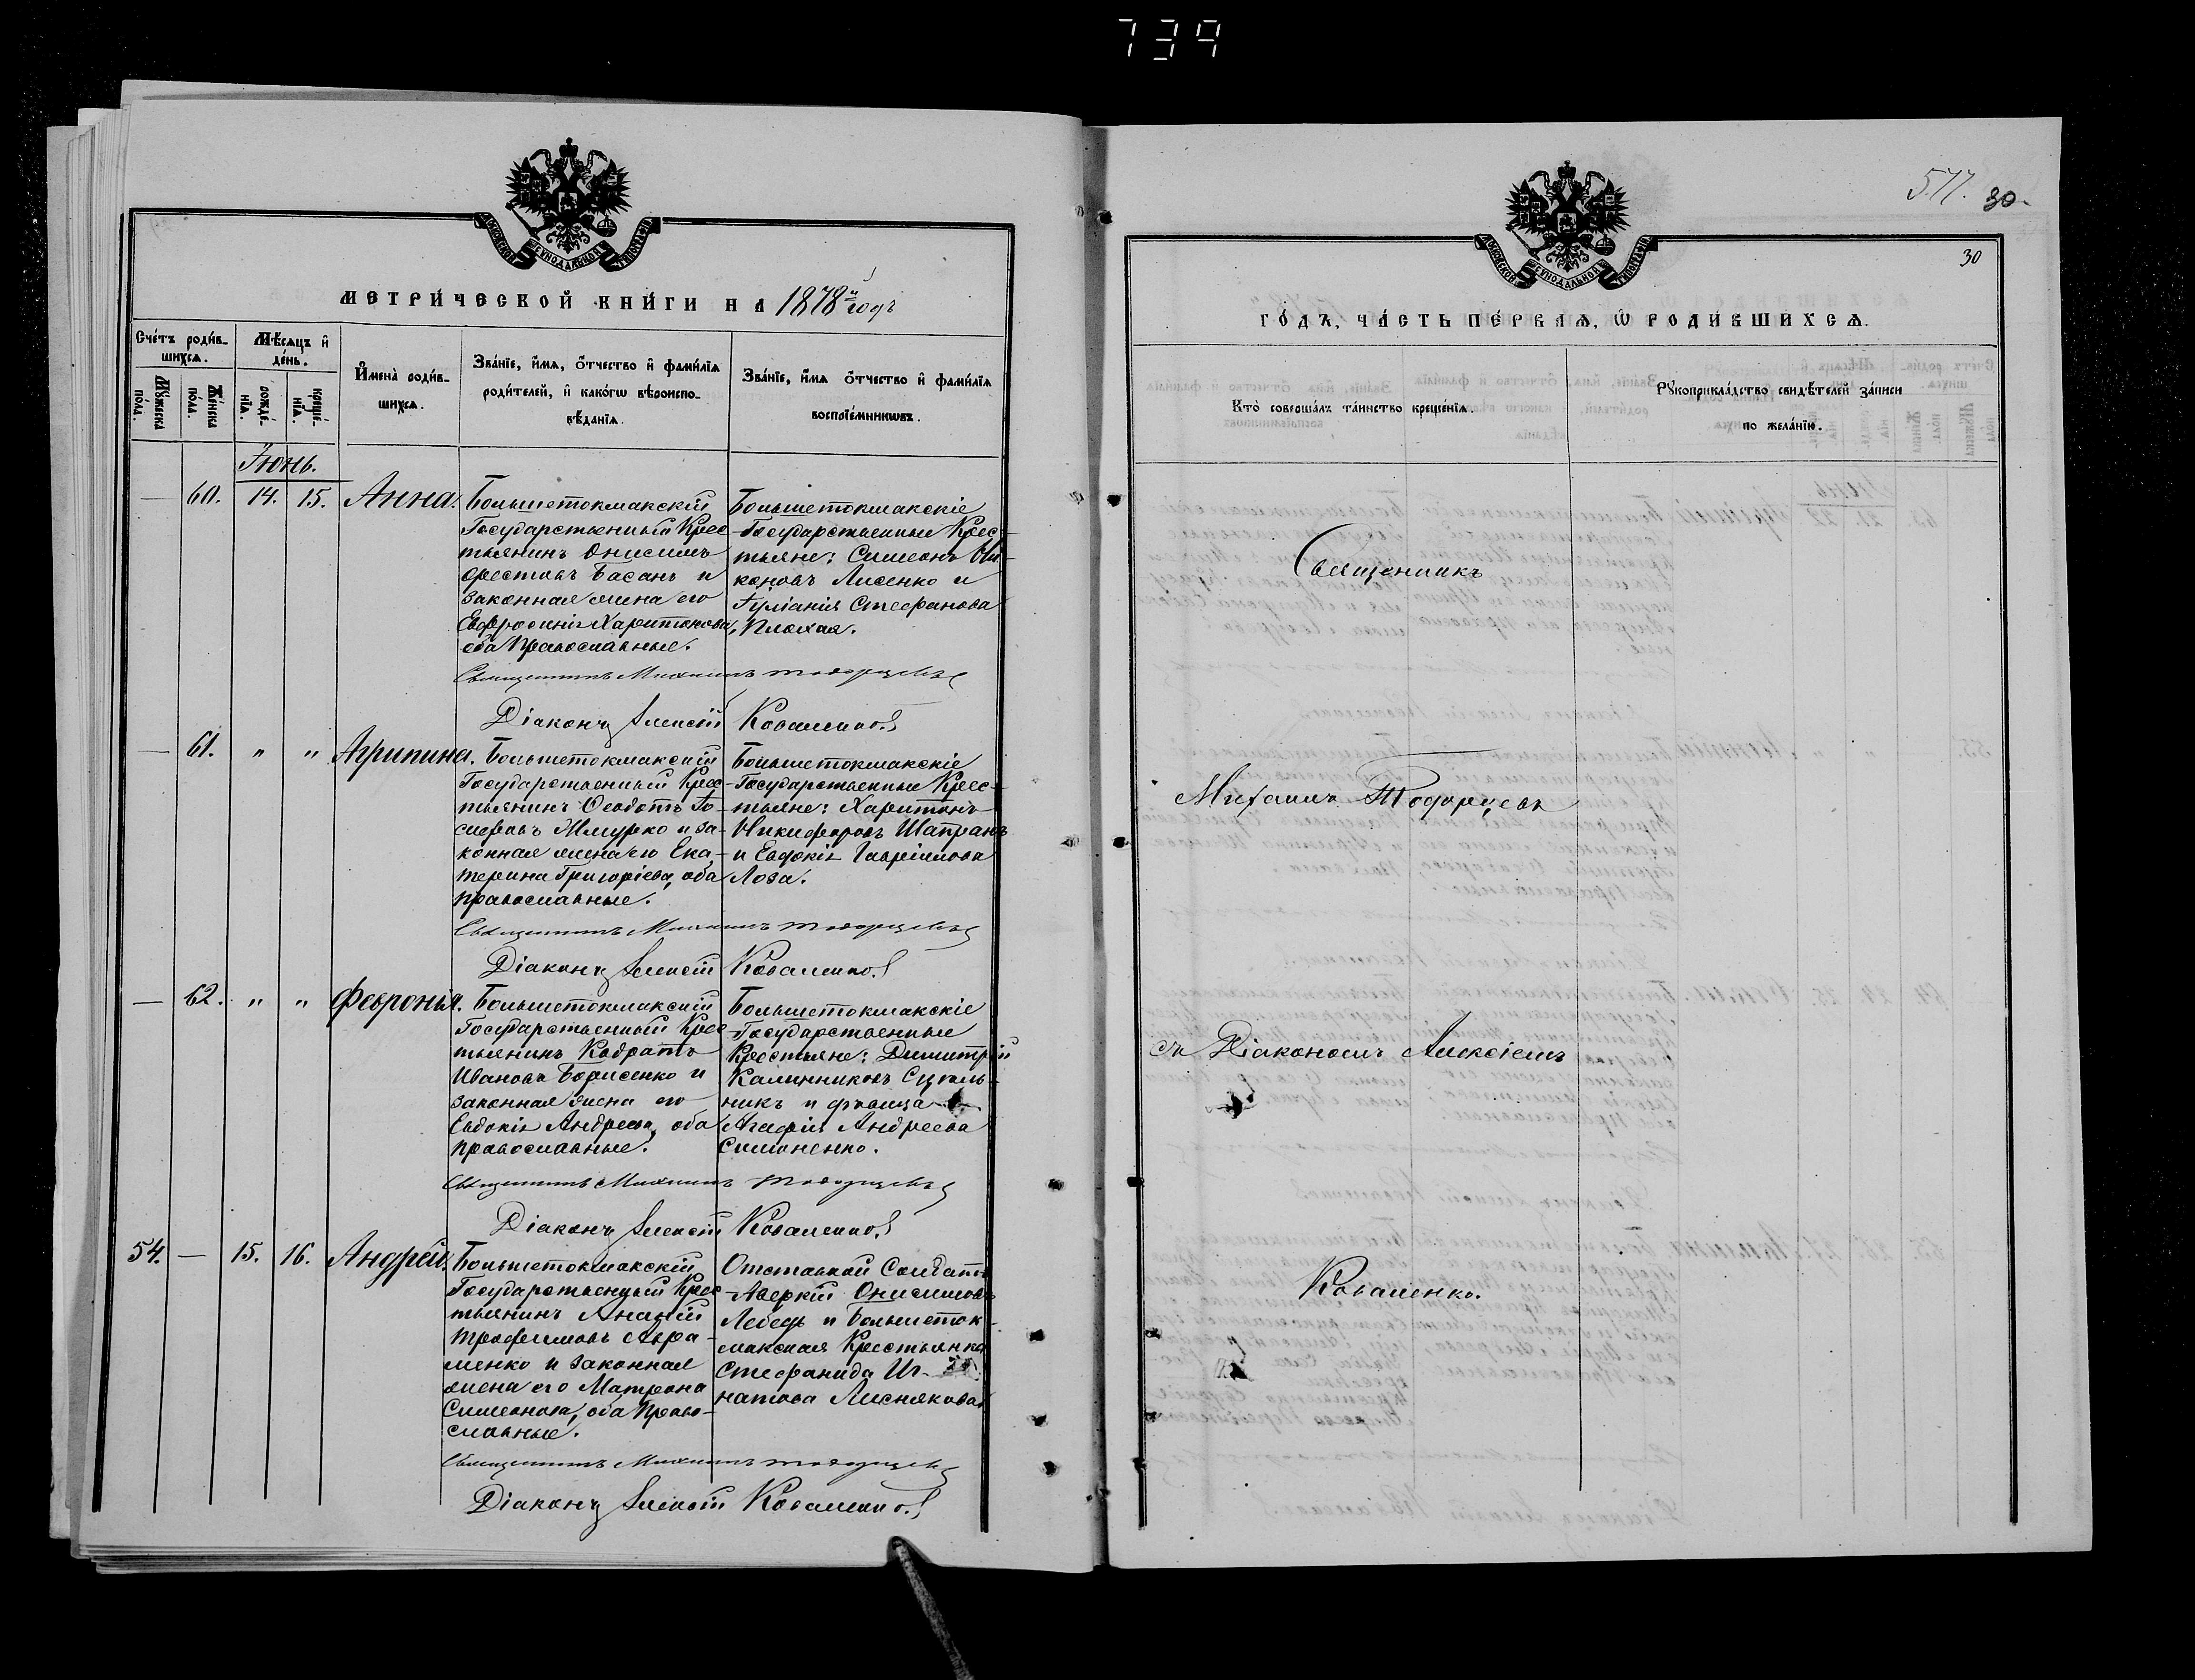 739
МОСКОВСКОЙ СѴНОДАЛЬНОЙ ТИПОГРАФІИ
МЕТРИ́ЧЕСКОЙ КНИ́ГИ НА 1878й годъ
Сче́тъ роди́в-
шихсѧ.
Мѣ́сѧцъ и҆
де́нь.
Мꙋ́жеска
по́ла.
Же́нска
по́ла.
рожде́-
нїѧ.
креще́-
нїѧ.
И҆мена̀ роди́в-
шихсѧ.
Зва́нїе, и҆́мѧ, ѻ҆́тчество и҆ фамі́лїѧ
роди́телей, и҆ како́гѡ вѣроиспо-
вѣ́данїѧ.
Зва́нїе, и҆́мѧ ѻ҆́тчество и҆ фамі́лїѧ
воспрїе́мникѡвъ.
Іюнь.
— 60. 14. 15. Анна.
Большетокмакскій
Государственный Крес
тьянинъ Онисимъ
Орестовъ Басанъ и
законная жена его
Евфросинія Харитонова,
оба Православные.
Большетокмакскіе
Государственные Крес-
тьяне: Симеонъ Ни-
коновъ Лисенко и
Іуліанія Стефанова
Плохая.
Священникъ Михаилъ Тодорцевъ
Діаконъ Алексій Коваленко
— 61. " " Агрипина.
Большетокмакскій
Государственный Крес
тьянинъ Ѳеодотъ Іо-
сифовъ Жмурко и за-
конная жена его Ека-
терина Григоріева, оба
православные.
Большетокмакскіе
Государственные Крес-
тьяне: Харитонъ
Никифоровъ Шапранъ
и Евдокія Гавріилова
Лоза.
Священникъ Михаилъ Тодорцевъ
Діаконъ Алексій Коваленко
— 62. " " Февронья.
Большетокмакскій
Государственный Крес
тьянинъ Кодратъ
Ивановъ Борисенко и
законная жена его
Евдокія Андреева, оба
православные.
Большетокмакскіе
Государственные
Крестьяне: Димитрій
Калинниковъ
никъ и девица
Агафія Андреева
Симоненко.
Священникъ Михаилъ Тодорцевъ
Діаконъ Алексій Коваленко
54. — 15. 16. Андрей.
Большетокмакскій
Государственный Крес
тьянинъ Ананій
Трофимовъ Авра-
менко и законная
жена его Матрона
Симеонова, оба Право-
славные.
Отставной Солдатъ
Аверкій Онисимовъ
Лебедь и Большеток-
макская Крестьянка
Стефанида Иг-
натова Лиснякова
Священникъ Михаилъ Тодорцевъ
Діаконъ Алексій Коваленко
577. 30.
30
МОСКОВСКОЙ СѴНОДАЛЬНОЙ ТИПОГРАФІИ
ГО́ДЪ, ЧА́СТЬ ПЕ́РВАѦ, Ѡ҆ РОДИ́ВШИХСѦ.
Кто̀ соверша́лъ та́инство креще́нїѧ.
Рꙋкоприкла́дство свидѣ́телей за́писи
по жела́нїю.
Священникъ
Михаилъ Тодорцевъ
съ Діакономъ Алексіемъ
Коваленко.